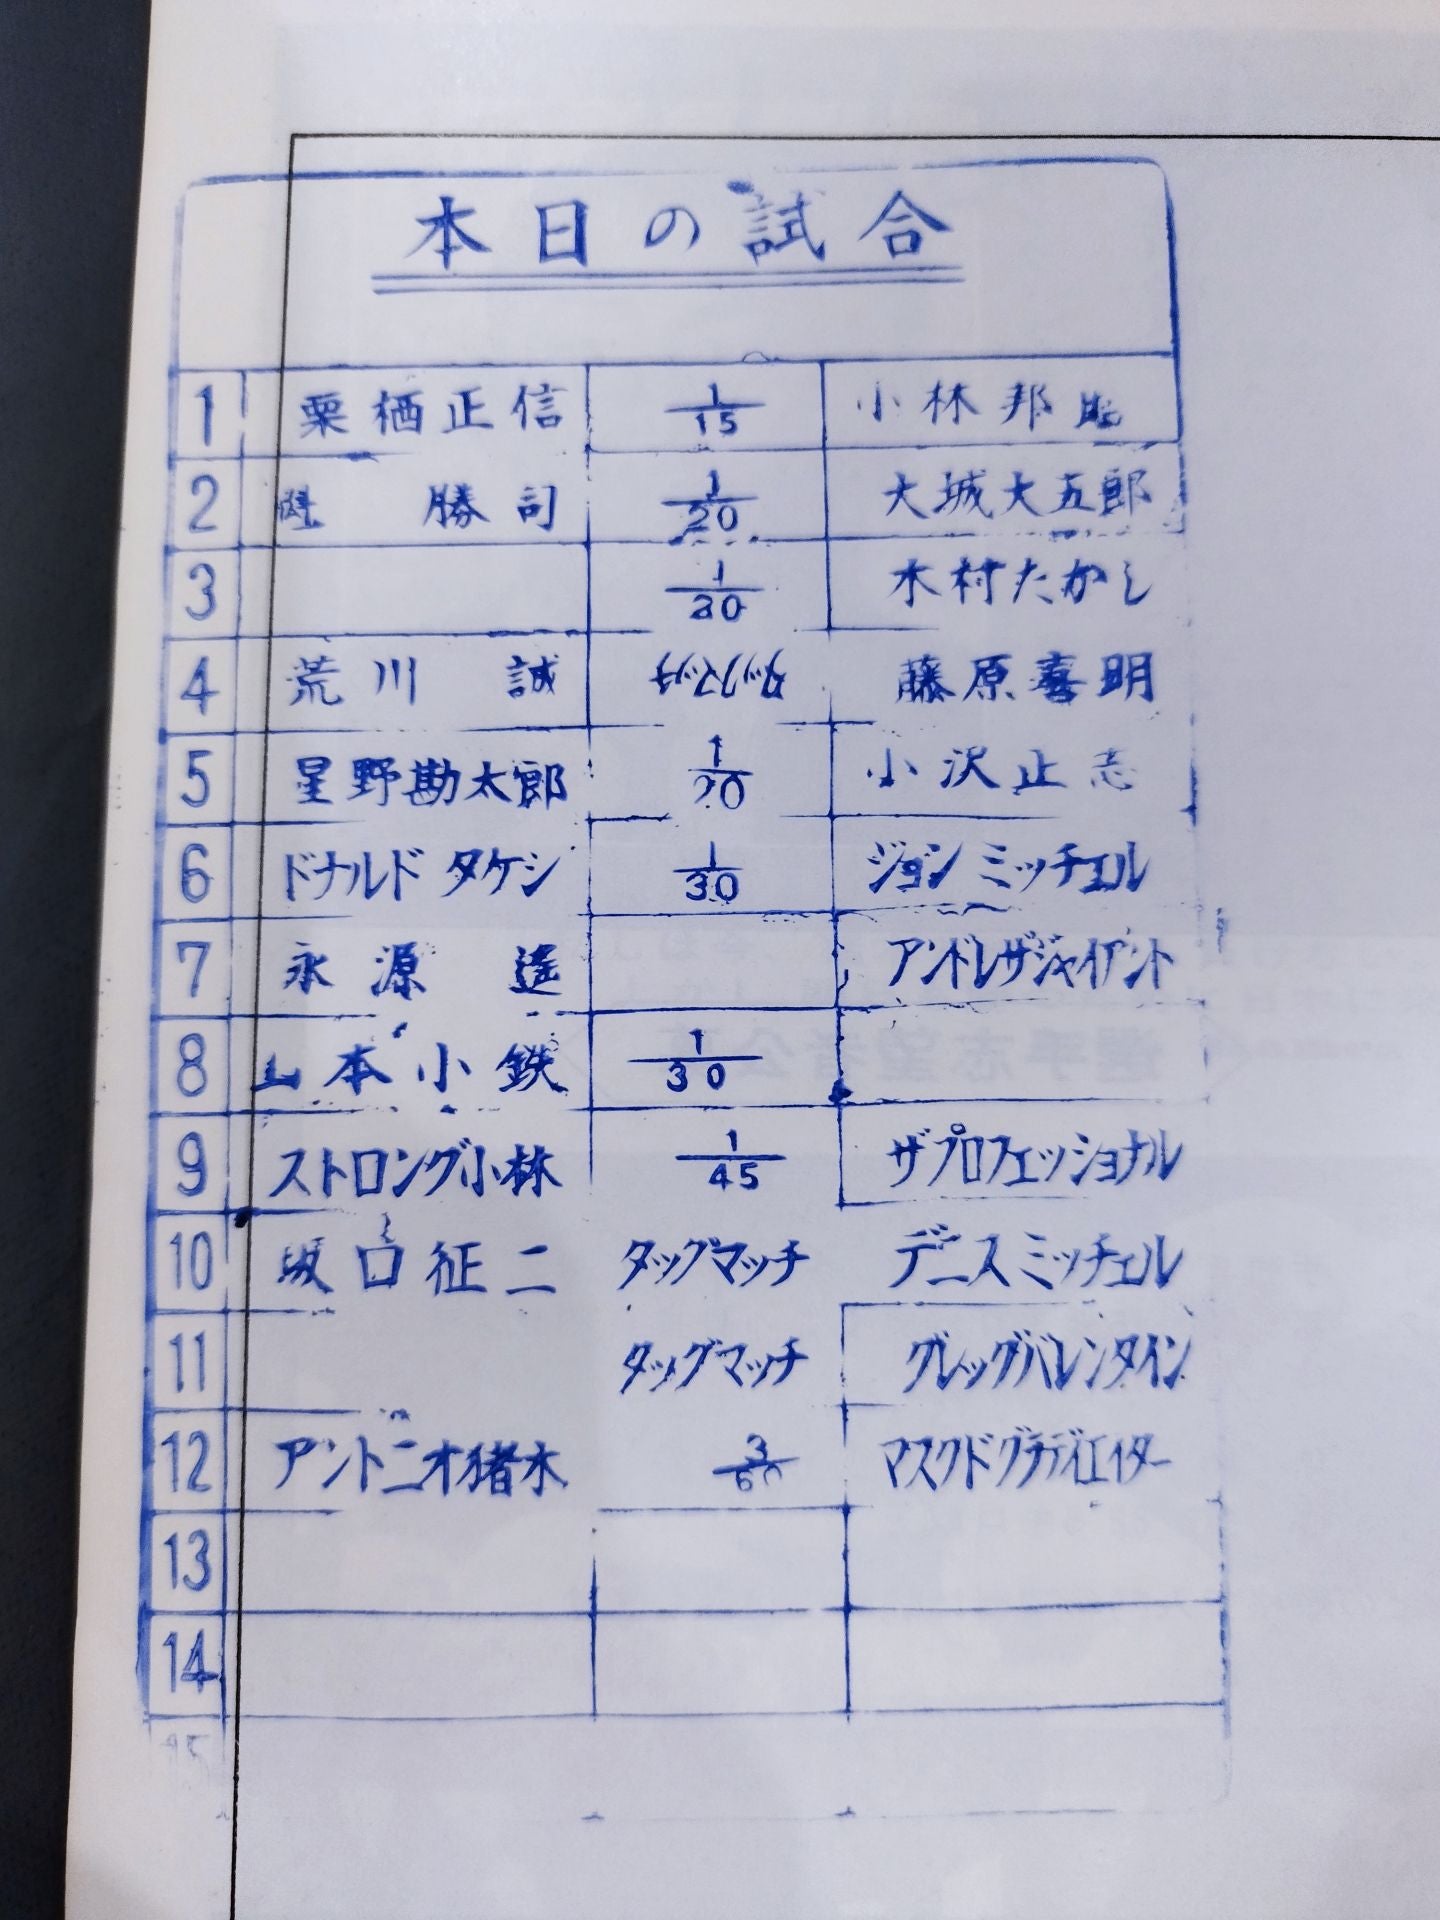 本日の試合
1 栗栖正信 1/15 小林邦
2 勝司 1/20 大城大五郎
3 1/20 木村たかし
4 荒川 誠 タッグマッチ 藤原喜明
5 星野勘太郎 1/20 小沢正志
6 ドナルド タケシ 1/30 ジョン ミッチェル
7 永源 遥 アンドレザジャイアント
8 山本小鉄 1/30
9 ストロング小林 1/45 ザプロフェッショナル
10 坂口征二 タッグマッチ デニスミッチェル
11 タッグマッチ グレッグバレンタイン
12 アントニオ猪木 3/60 マスクドグラディエイター
13
14
15